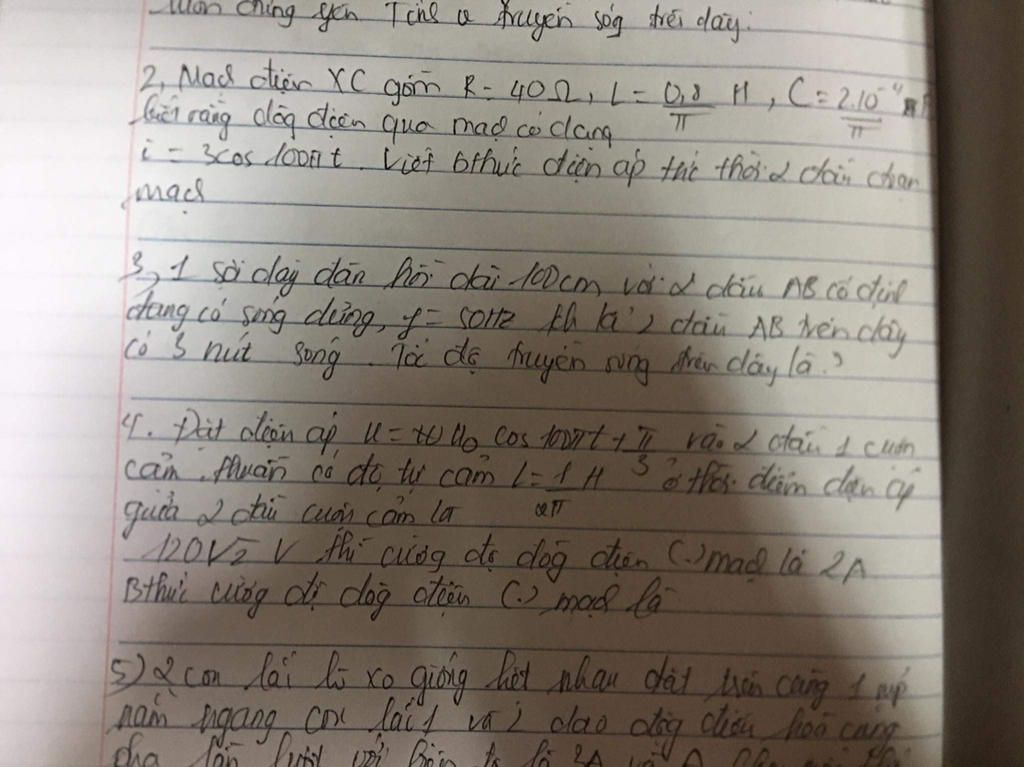 luôn chúng yên Tính v truyền sóg trên dây.
2, Mạch điện XC gồm R = 40Ω, L = 0,8/π H, C = 2.10⁻⁴/π F
biết rằng dòg điện qua mạch có dạng
i = 3cos 100πt. Viết bthức điện áp tức thời 2 đầu đoạn
mạch
3, 1 sợi dây đàn hồi dài 100cm với 2 đầu AB cố định
đang có sóng dừng, f = 50Hz th kể 2 đầu AB trên dây
có 3 nút sóng. Tốc độ truyền sóng trên dây là?
4. Đặt điện áp u = U₀ cos 100πt + π/3 vào 2 đầu 1 cuộn
cảm thuần có độ tự cảm L = 1/2π H ở thời điểm điện áp
giữa 2 đầu cuộn cảm là
120√2 V thì cườg độ dòg điện (.) mạch là 2A
Bthức cườg độ dòg điện (.) mạch là
5) 2 con lắc lò xo giống hệt nhau đặt trên cùng 1 mp
nằm ngang con lắc 1 và 2 dao độg điều hoà cùng
pha lần lượt với biên độ là 3A và A